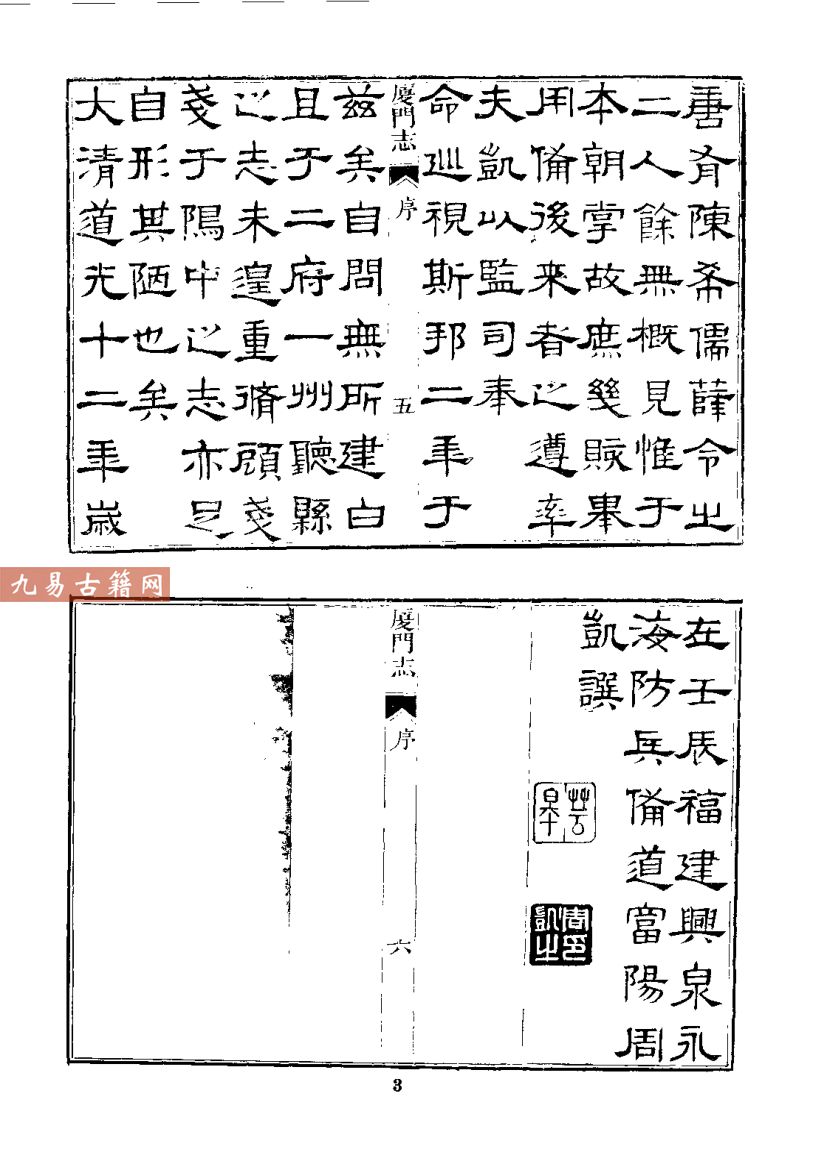 唐有陳希儒薛令之
二人餘無概見惟于
本朝掌故庶幾賅舉
用備後来者之遵率
夫凱以監司奉
命巡視斯邦二年于
廈門志 序 五
茲矣自問無所建白
且于二府一州聽縣
之志未遑重脩顧戔
戔于隝中之志亦足
自形其陋也矣
大清道光十二年歲
九易古籍网
在壬辰福建興泉永
海防兵備道富陽周
凱譔
芸皋
周印凱之
廈門志 序 六
3